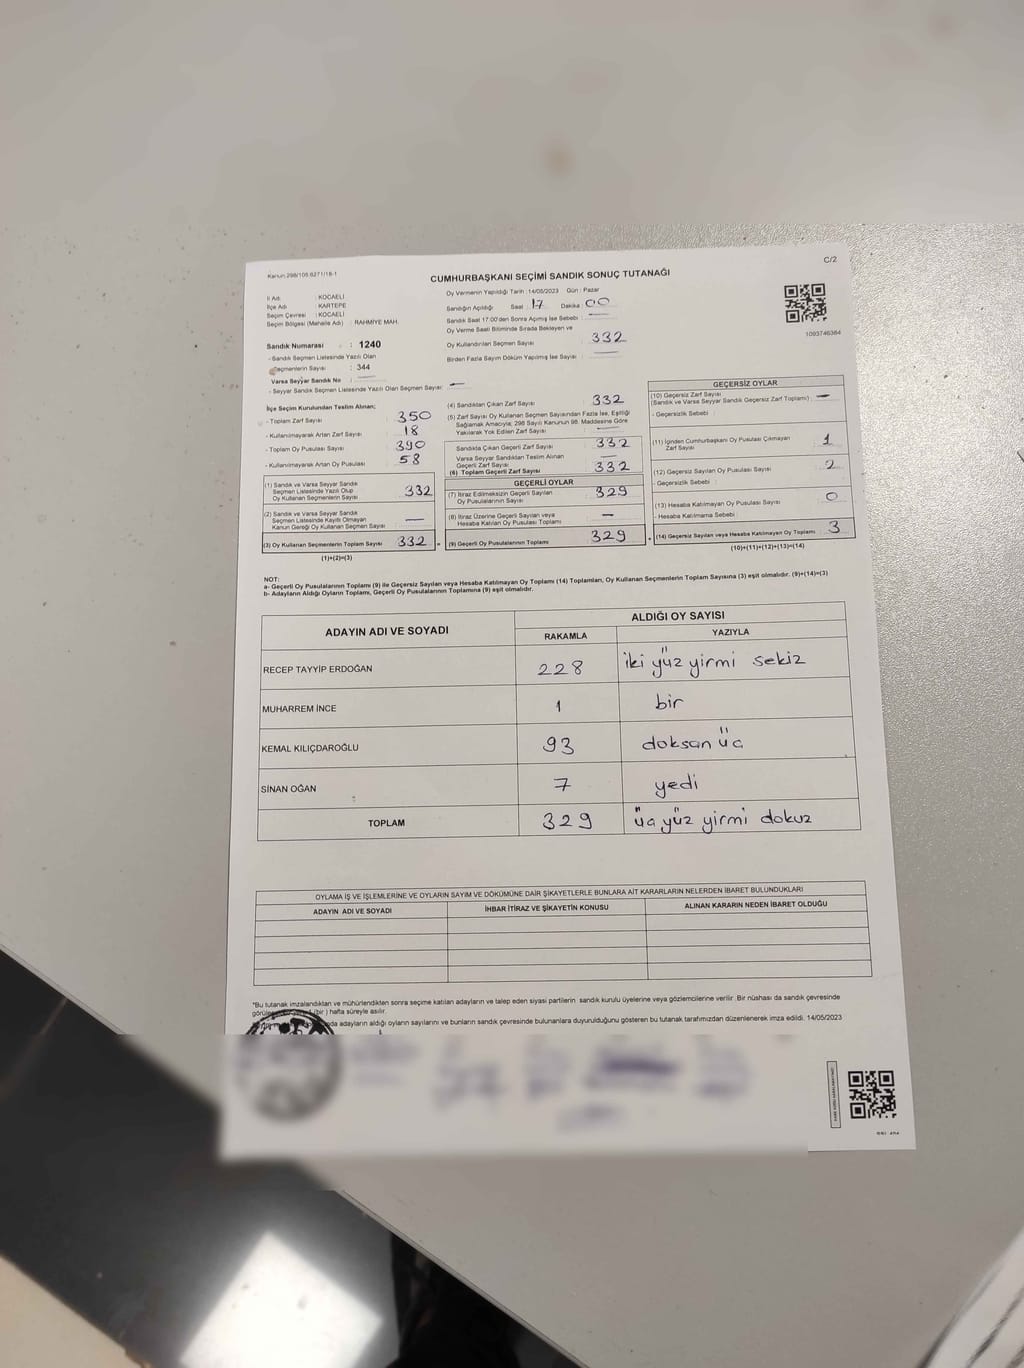 Kanun:298/105 6271/18-1
C/2
CUMHURBAŞKANI SEÇİMİ SANDIK SONUÇ TUTANAĞI
İl Adı : KOCAELİ
İlçe Adı : KARTEPE
Seçim Çevresi : KOCAELİ
Seçim Bölgesi (Mahalle Adı) : RAHMİYE MAH.
Oy Vermenin Yapıldığı Tarih : 14/05/2023 Gün : Pazar
Sandığın Açıldığı Saat 17 Dakika 00
Sandık Saat 17:00'den Sonra Açılmış İse Sebebi :
Oy Verme Saati Bitiminde Sırada Bekleyen ve
Oy Kullandırılan Seçmen Sayısı : 332
Birden Fazla Sayım Döküm Yapılmış İse Sayısı :
1093746364
Sandık Numarası : 1240
- Sandık Seçmen Listesinde Yazılı Olan
Seçmenlerin Sayısı : 344
Varsa Seyyar Sandık No :
- Seyyar Sandık Seçmen Listesinde Yazılı Olan Seçmen Sayısı: —
İlçe Seçim Kurulundan Teslim Alınan;
- Toplam Zarf Sayısı : 350
- Kullanılmayarak Artan Zarf Sayısı : 18
- Toplam Oy Pusulası Sayısı : 390
- Kullanılmayarak Artan Oy Pusulası : 58
(1) Sandık ve Varsa Seyyar Sandık
Seçmen Listesinde Yazılı Olup
Oy Kullanan Seçmenlerin Sayısı 332
(2) Sandık ve Varsa Seyyar Sandık
Seçmen Listesinde Kayıtlı Olmayan
Kanun Gereği Oy Kullanan Seçmen Sayısı —
(3) Oy Kullanan Seçmenlerin Toplam Sayısı 332
(1)+(2)=(3)
(4) Sandıktan Çıkan Zarf Sayısı : 332
(5) Zarf Sayısı Oy Kullanan Seçmen Sayısından Fazla İse, Eşitliği
Sağlamak Amacıyla; 298 Sayılı Kanunun 98. Maddesine Göre
Yakılarak Yok Edilen Zarf Sayısı : —
Sandıkta Çıkan Geçerli Zarf Sayısı 332
Varsa Seyyar Sandıktan Teslim Alınan
Geçerli Zarf Sayısı —
(6) Toplam Geçerli Zarf Sayısı 332
GEÇERLİ OYLAR
(7) İtiraz Edilmeksizin Geçerli Sayılan
Oy Pusulalarının Sayısı 329
(8) İtiraz Üzerine Geçerli Sayılan veya
Hesaba Katılan Oy Pusulası Toplamı —
(9) Geçerli Oy Pusulalarının Toplamı 329
GEÇERSİZ OYLAR
(10) Geçersiz Zarf Sayısı
(Sandık ve Varsa Seyyar Sandık Geçersiz Zarf Toplamı) —
- Geçersizlik Sebebi :
(11) İçinden Cumhurbaşkanı Oy Pusulası Çıkmayan
Zarf Sayısı 1
(12) Geçersiz Sayılan Oy Pusulası Sayısı 2
- Geçersizlik Sebebi :
(13) Hesaba Katılmayan Oy Pusulası Sayısı 0
- Hesaba Katılmama Sebebi :
(14) Geçersiz Sayılan veya Hesaba Katılmayan Oy Toplamı 3
(10)+(11)+(12)+(13)=(14)
NOT:
a- Geçerli Oy Pusulalarının Toplamı (9) ile Geçersiz Sayılan veya Hesaba Katılmayan Oy Toplamı (14) Toplamları, Oy Kullanan Seçmenlerin Toplam Sayısına (3) eşit olmalıdır. (9)+(14)=(3)
b- Adayların Aldığı Oyların Toplamı, Geçerli Oy Pusulalarının Toplamına (9) eşit olmalıdır.
ADAYIN ADI VE SOYADI
ALDIĞI OY SAYISI
RAKAMLA YAZIYLA
RECEP TAYYİP ERDOĞAN 228 iki yüz yirmi sekiz
MUHARREM İNCE 1 bir
KEMAL KILIÇDAROĞLU 93 doksan üç
SİNAN OĞAN 7 yedi
TOPLAM 329 üç yüz yirmi dokuz
OYLAMA İŞ VE İŞLEMLERİNE VE OYLARIN SAYIM VE DÖKÜMÜNE DAİR ŞİKAYETLERLE BUNLARA AİT KARARLARIN NELERDEN İBARET BULUNDUKLARI
ADAYIN ADI VE SOYADI İHBAR İTİRAZ VE ŞİKAYETİN KONUSU ALINAN KARARIN NEDEN İBARET OLDUĞU
*Bu tutanak imzalandıktan ve mühürlendikten sonra seçime katılan adayların ve talep eden siyasi partilerin sandık kurulu üyelerine veya gözlemcilerine verilir. Bir nüshası da sandık çevresinde
(bir) hafta süreyle asılır.
adayların aldığı oyların sayılarını ve bunların sandık çevresinde bulunanlara duyurulduğunu gösteren bu tutanak tarafımızdan düzenlenerek imza edildi. 14/05/2023